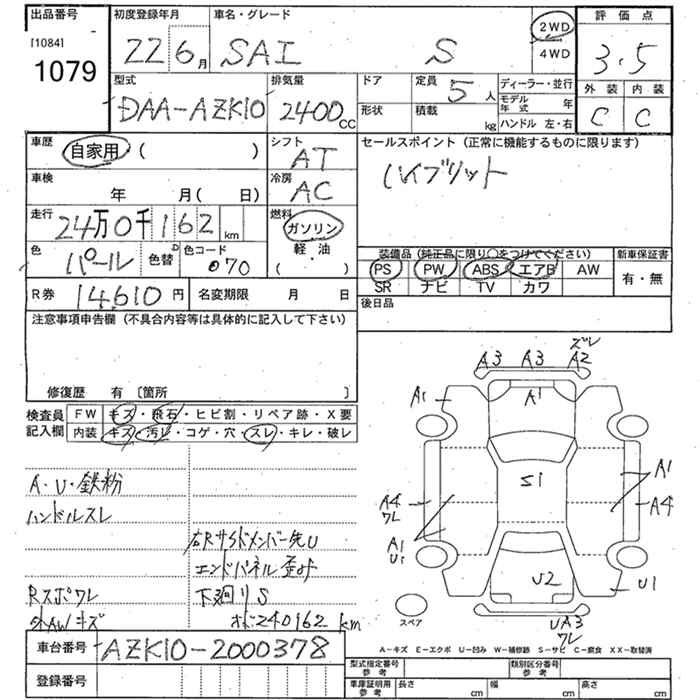 出品番号 初度登録年月 車名・グレード 2WD 4WD 評価点
[1084] 1079 22 6月 SAI S 3.5
型式 排気量 ドア 定員 ディーラー・並行 外装 内装
DAA-AZK10 2400cc 形状 積載 5人 kg モデル年式 年 ハンドル 左・右 C C
車歴 自家用 ( ) シフト AT セールスポイント (正常に機能するものに限ります)
車検 年 月(日) 冷房 AC ハイブリット
走行 24万0千162km 燃料 ガソリン 軽・油 ( )
色 パール 色替 色コード 070 装備品 (純正品に限り○をつけてください) 新車保証書
PS PW ABS エアB AW 有・無
SR ナビ TV カワ
R券 14,610円 名変期限 月 日 後日品
注意事項申告欄 (不具合内容等は具体的に記入して下さい)
修復歴 有 [箇所 ]
検査員記入欄 FW キズ・飛石・ヒビ割・リペア跡・X要
内装 キズ・汚レ・コゲ・穴・スレ・キレ・破レ
A・U・鉄粉
ハンドルスレ
右Rサイドメンバー先U
エンドパネル歪ミ
Rスポワレ 下廻りS
外AWキズ オドメ240162km
ズレ
A3 A3 A2
A1 A1
S1 A1
A4 ワレ A4
A1 U1
U2 U1
スペア UA3 ワレ
A-キズ E-エクボ U-凹み W-補修跡 S-サビ C-腐食 XX-取替済
車台番号 AZK10-2000378
登録番号
型式指定番号 参考 類別区分番号 参考
車庫証明用 参考 長さ cm 幅 cm 高さ cm